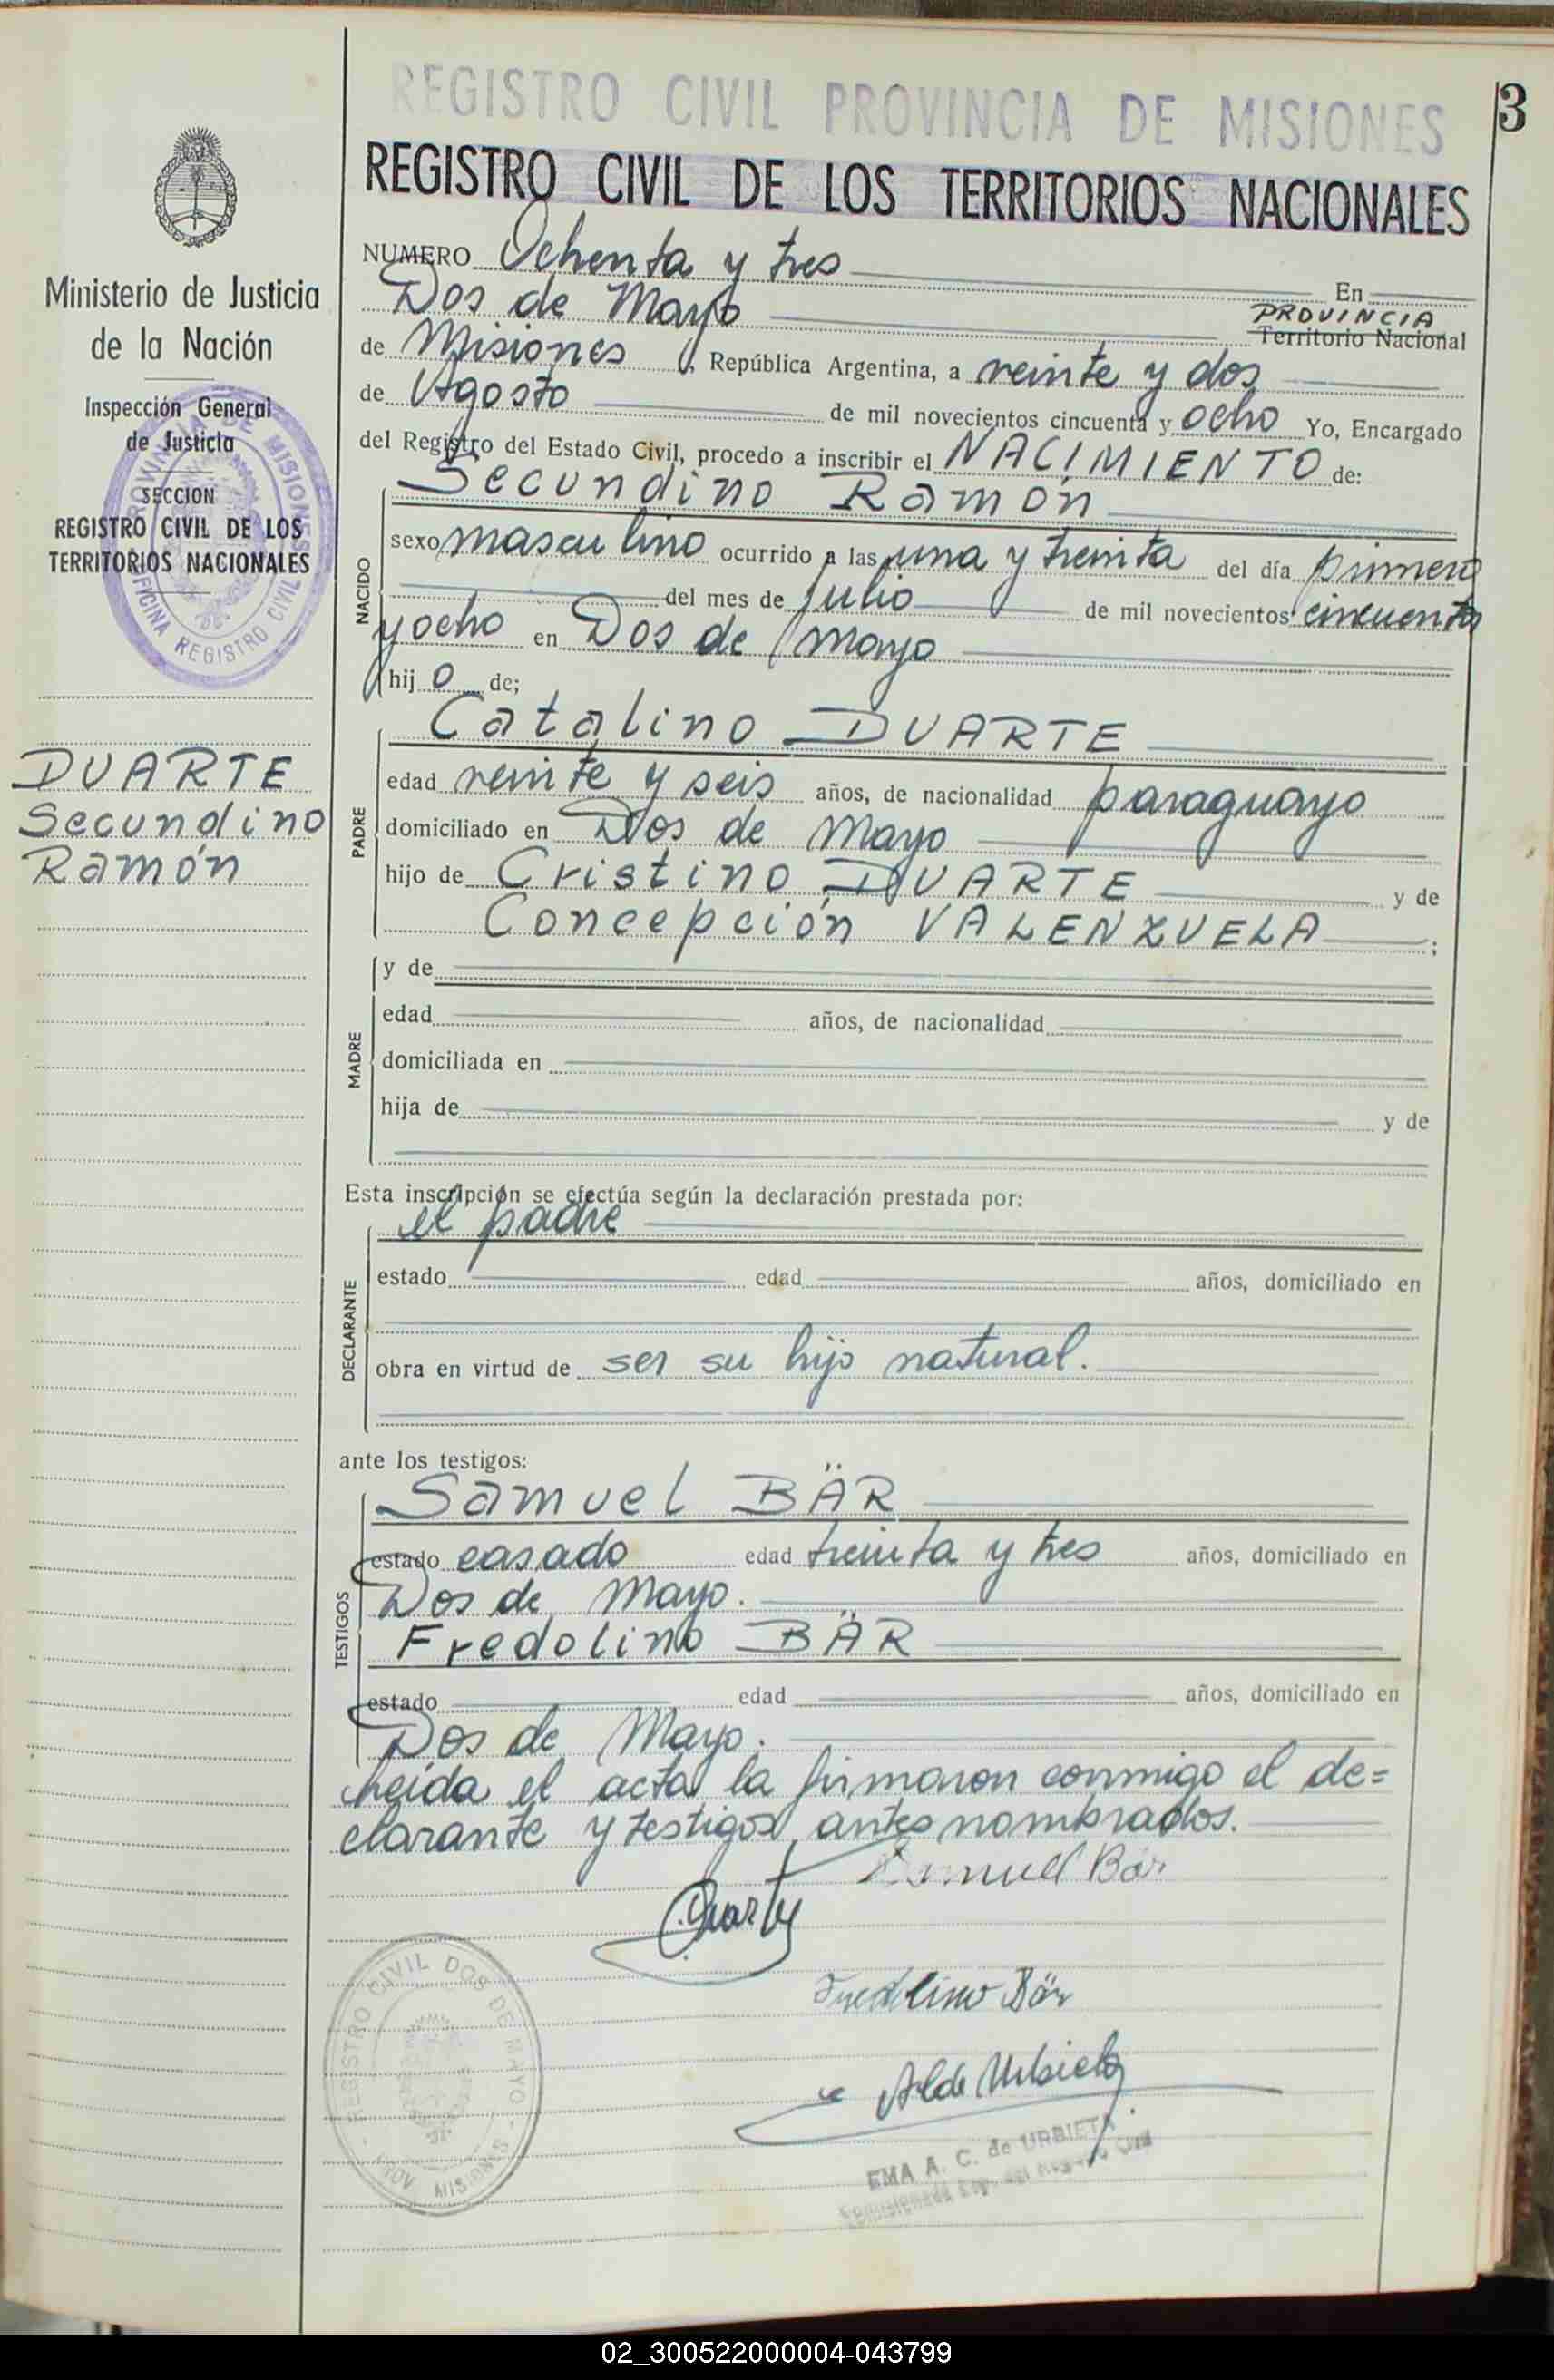 REGISTRO CIVIL PROVINCIA DE MISIONES
3
REGISTRO CIVIL DE LOS TERRITORIOS NACIONALES
Ministerio de Justicia
de la Nación
Inspección General
de Justicia
SECCION
REGISTRO CIVIL DE LOS
TERRITORIOS NACIONALES
PROVINCIA DE MISIONES
OFICINA REGISTRO CIVIL
DUARTE
Secundino
Ramón
NUMERO Ochenta y tres En
Dos de Mayo PROVINCIA
Territorio Nacional
de Misiones, República Argentina, a veinte y dos
de Agosto de mil novecientos cincuenta y ocho Yo, Encargado
del Registro del Estado Civil, procedo a inscribir el NACIMIENTO de:
NACIDO
Secundino Ramón
sexo masculino ocurrido a las una y treinta del día primero
del mes de Julio de mil novecientos cincuenta
y ocho en Dos de Mayo
hij o de;
PADRE
Catalino DUARTE
edad veinte y seis años, de nacionalidad paraguayo
domiciliado en Dos de Mayo
hijo de Cristino DUARTE y de
Concepción VALENZUELA ;
MADRE
y de
edad años, de nacionalidad
domiciliada en
hija de y de
Esta inscripción se efectúa según la declaración prestada por:
DECLARANTE
el padre
estado edad años, domiciliado en
obra en virtud de ser su hijo natural.
ante los testigos:
TESTIGOS
Samuel BÄR
estado casado edad treinta y tres años, domiciliado en
Dos de Mayo.
Fredolino BÄR
estado edad años, domiciliado en
Dos de Mayo.
Leída el acta la firmaron conmigo el de=
clarante y testigos antes nombrados.
Samuel Bär
Duarte
Fredolino Bär
A de Urbieta
EMA A. C. de URBIETA
REGISTRO CIVIL DOS DE MAYO
PROV MISIONES
02_300522000004-043799